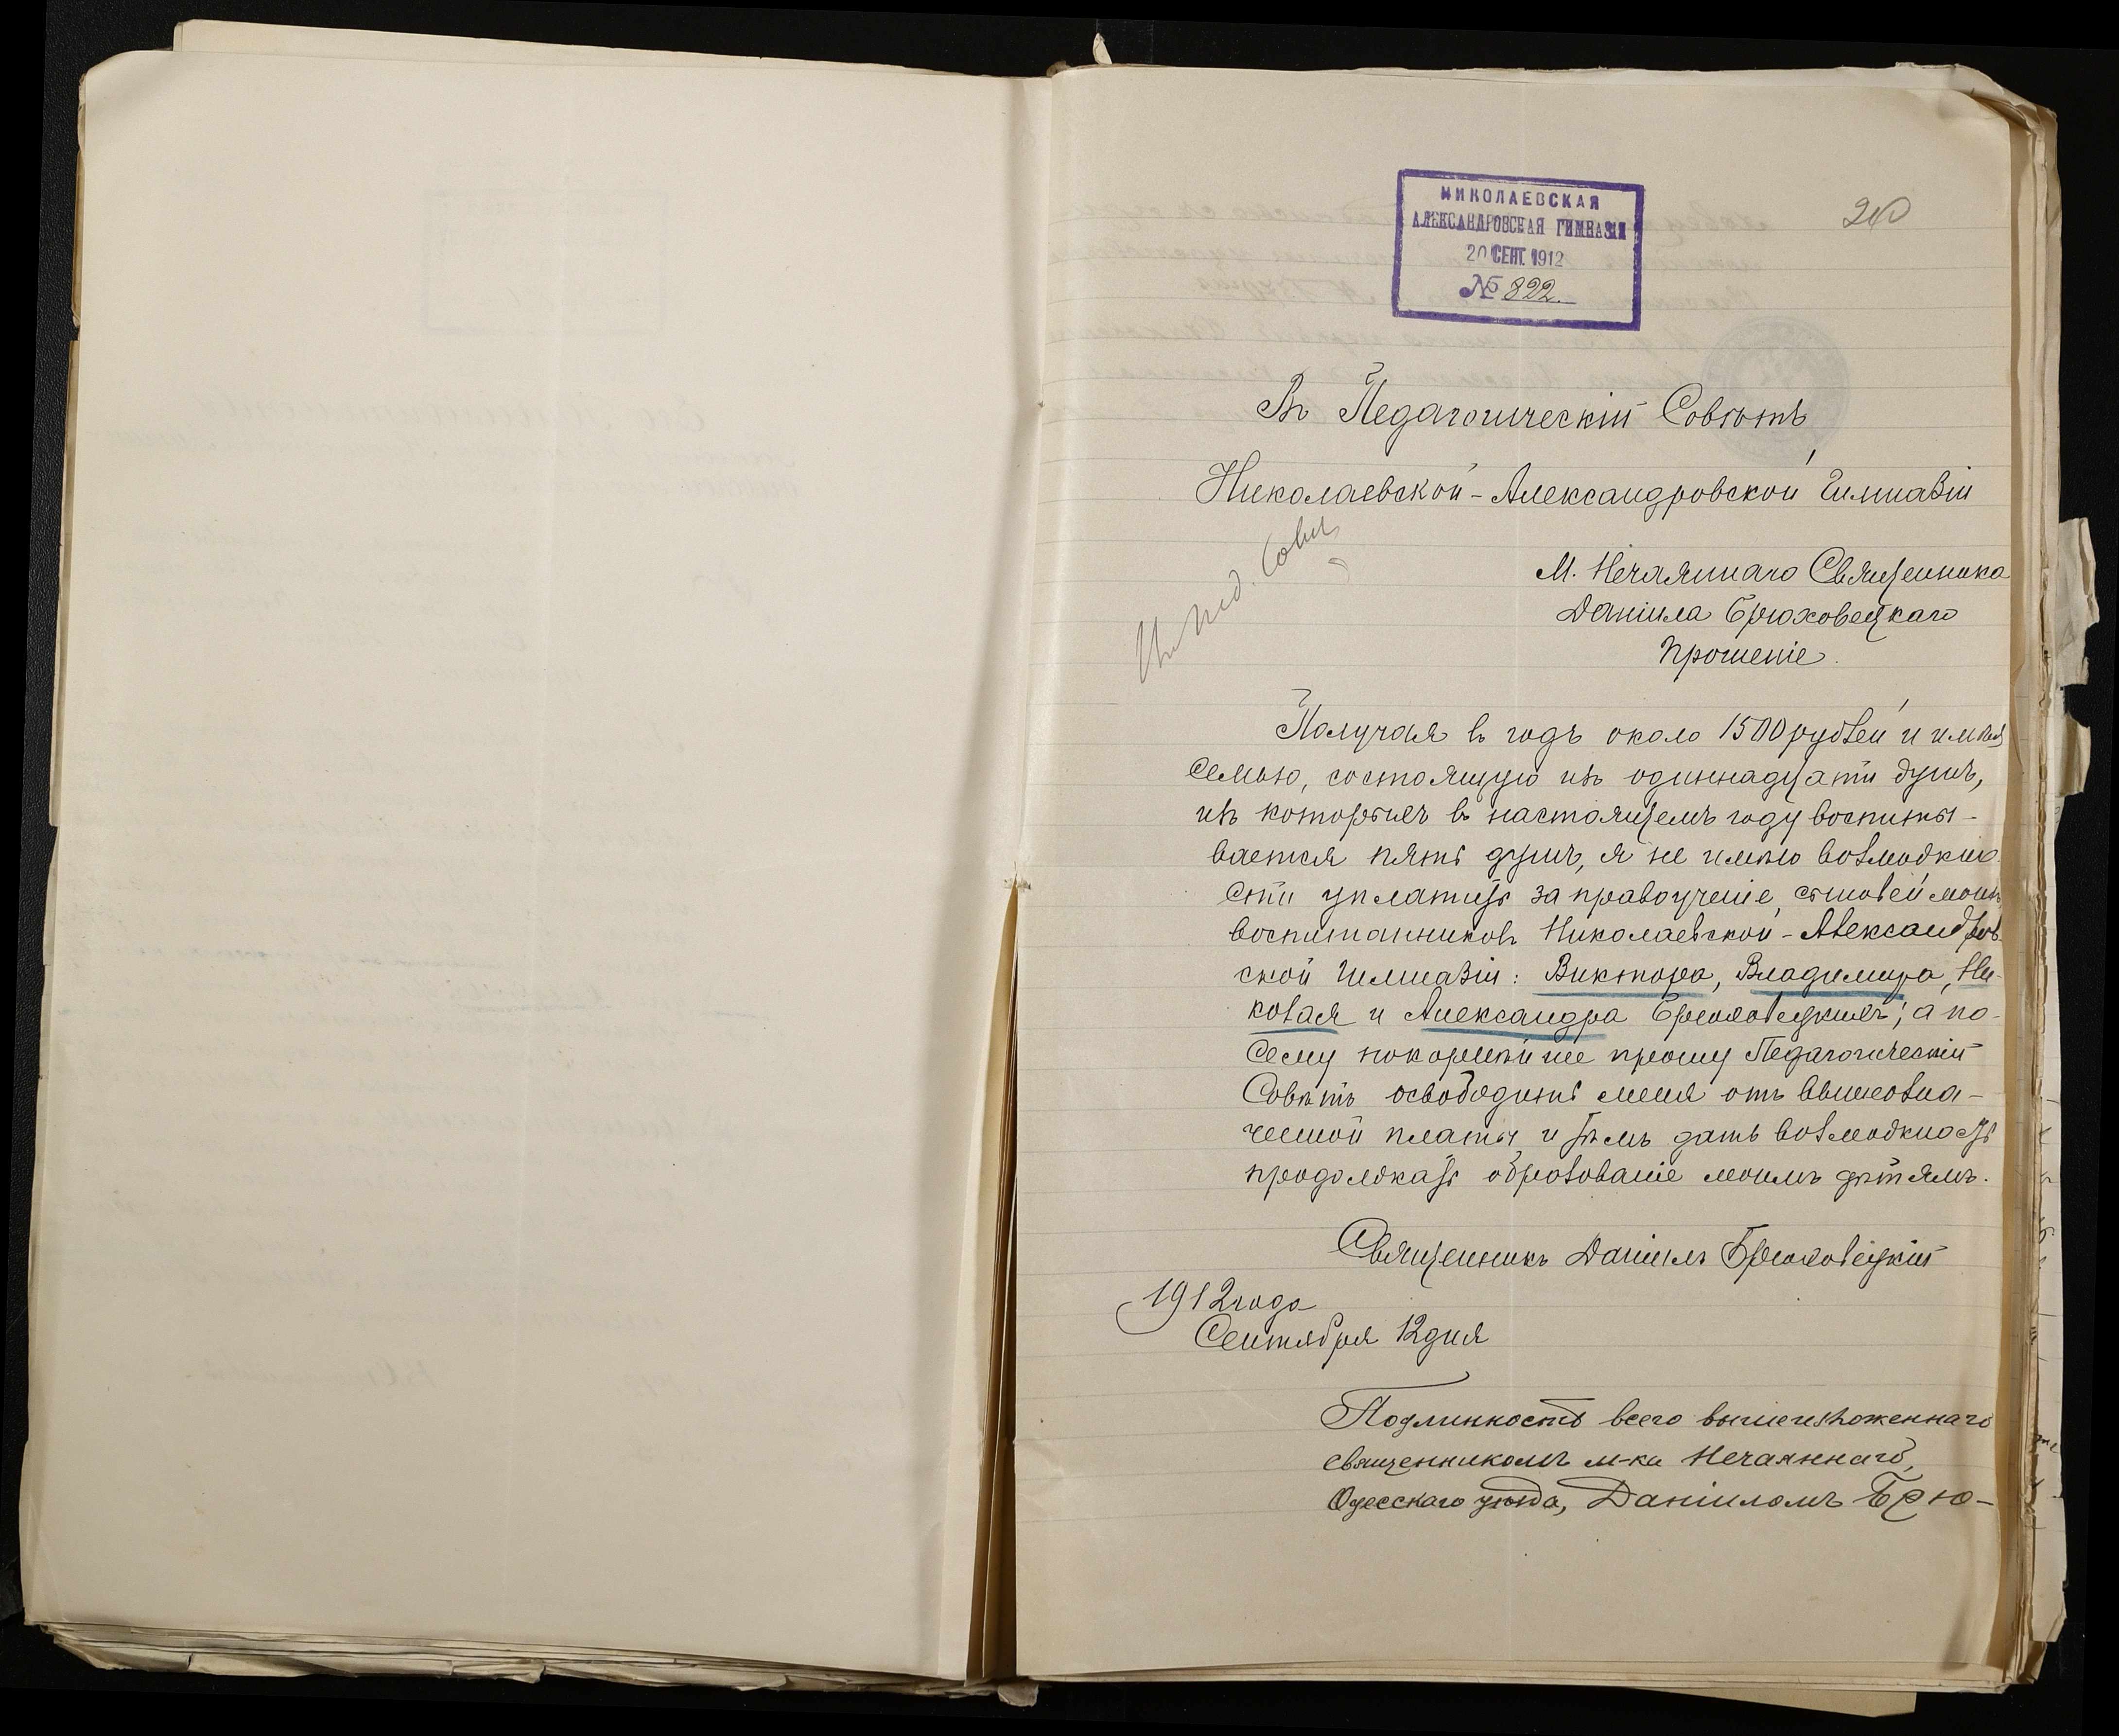 НИКОЛАЕВСКАЯ
АЛЕКСАНДРОВСКАЯ ГИМНАЗІЯ
20 СЕНТ. 1912
№ 822.
20
Въ Педагогическій Совѣтъ
Николаевской-Александровской Гимназіи
М. Нечаяннаго Священника
Даніила Брюховецкаго
Прошеніе.
Получая въ годъ около 1500 рублей и имѣя
семью, состоящую изъ одиннадцати душъ,
изъ которыхъ въ настоящемъ году воспиты-
вается пять душъ, я не имѣю возможно-
сти уплатить за правоученіе, сыновей моихъ
воспитанниковъ Николаевской-Александров-
ской Гимназіи: Виктора, Владимира, Ни-
колая и Александра Брюховецкихъ; а по-
сему покорнѣйше прошу Педагогическій
Совѣтъ освободить меня отъ вышеозна-
ченной платы и тѣмъ дать возможность
продолжать образованіе моимъ дѣтямъ.
Священникъ Даніилъ Брюховецкій
1912 года
Сентября 12 дня
Подлинность всего вышеизложеннаго
священникомъ м-ка Нечаяннаго,
Одесскаго уѣзда, Даніиломъ Брю-